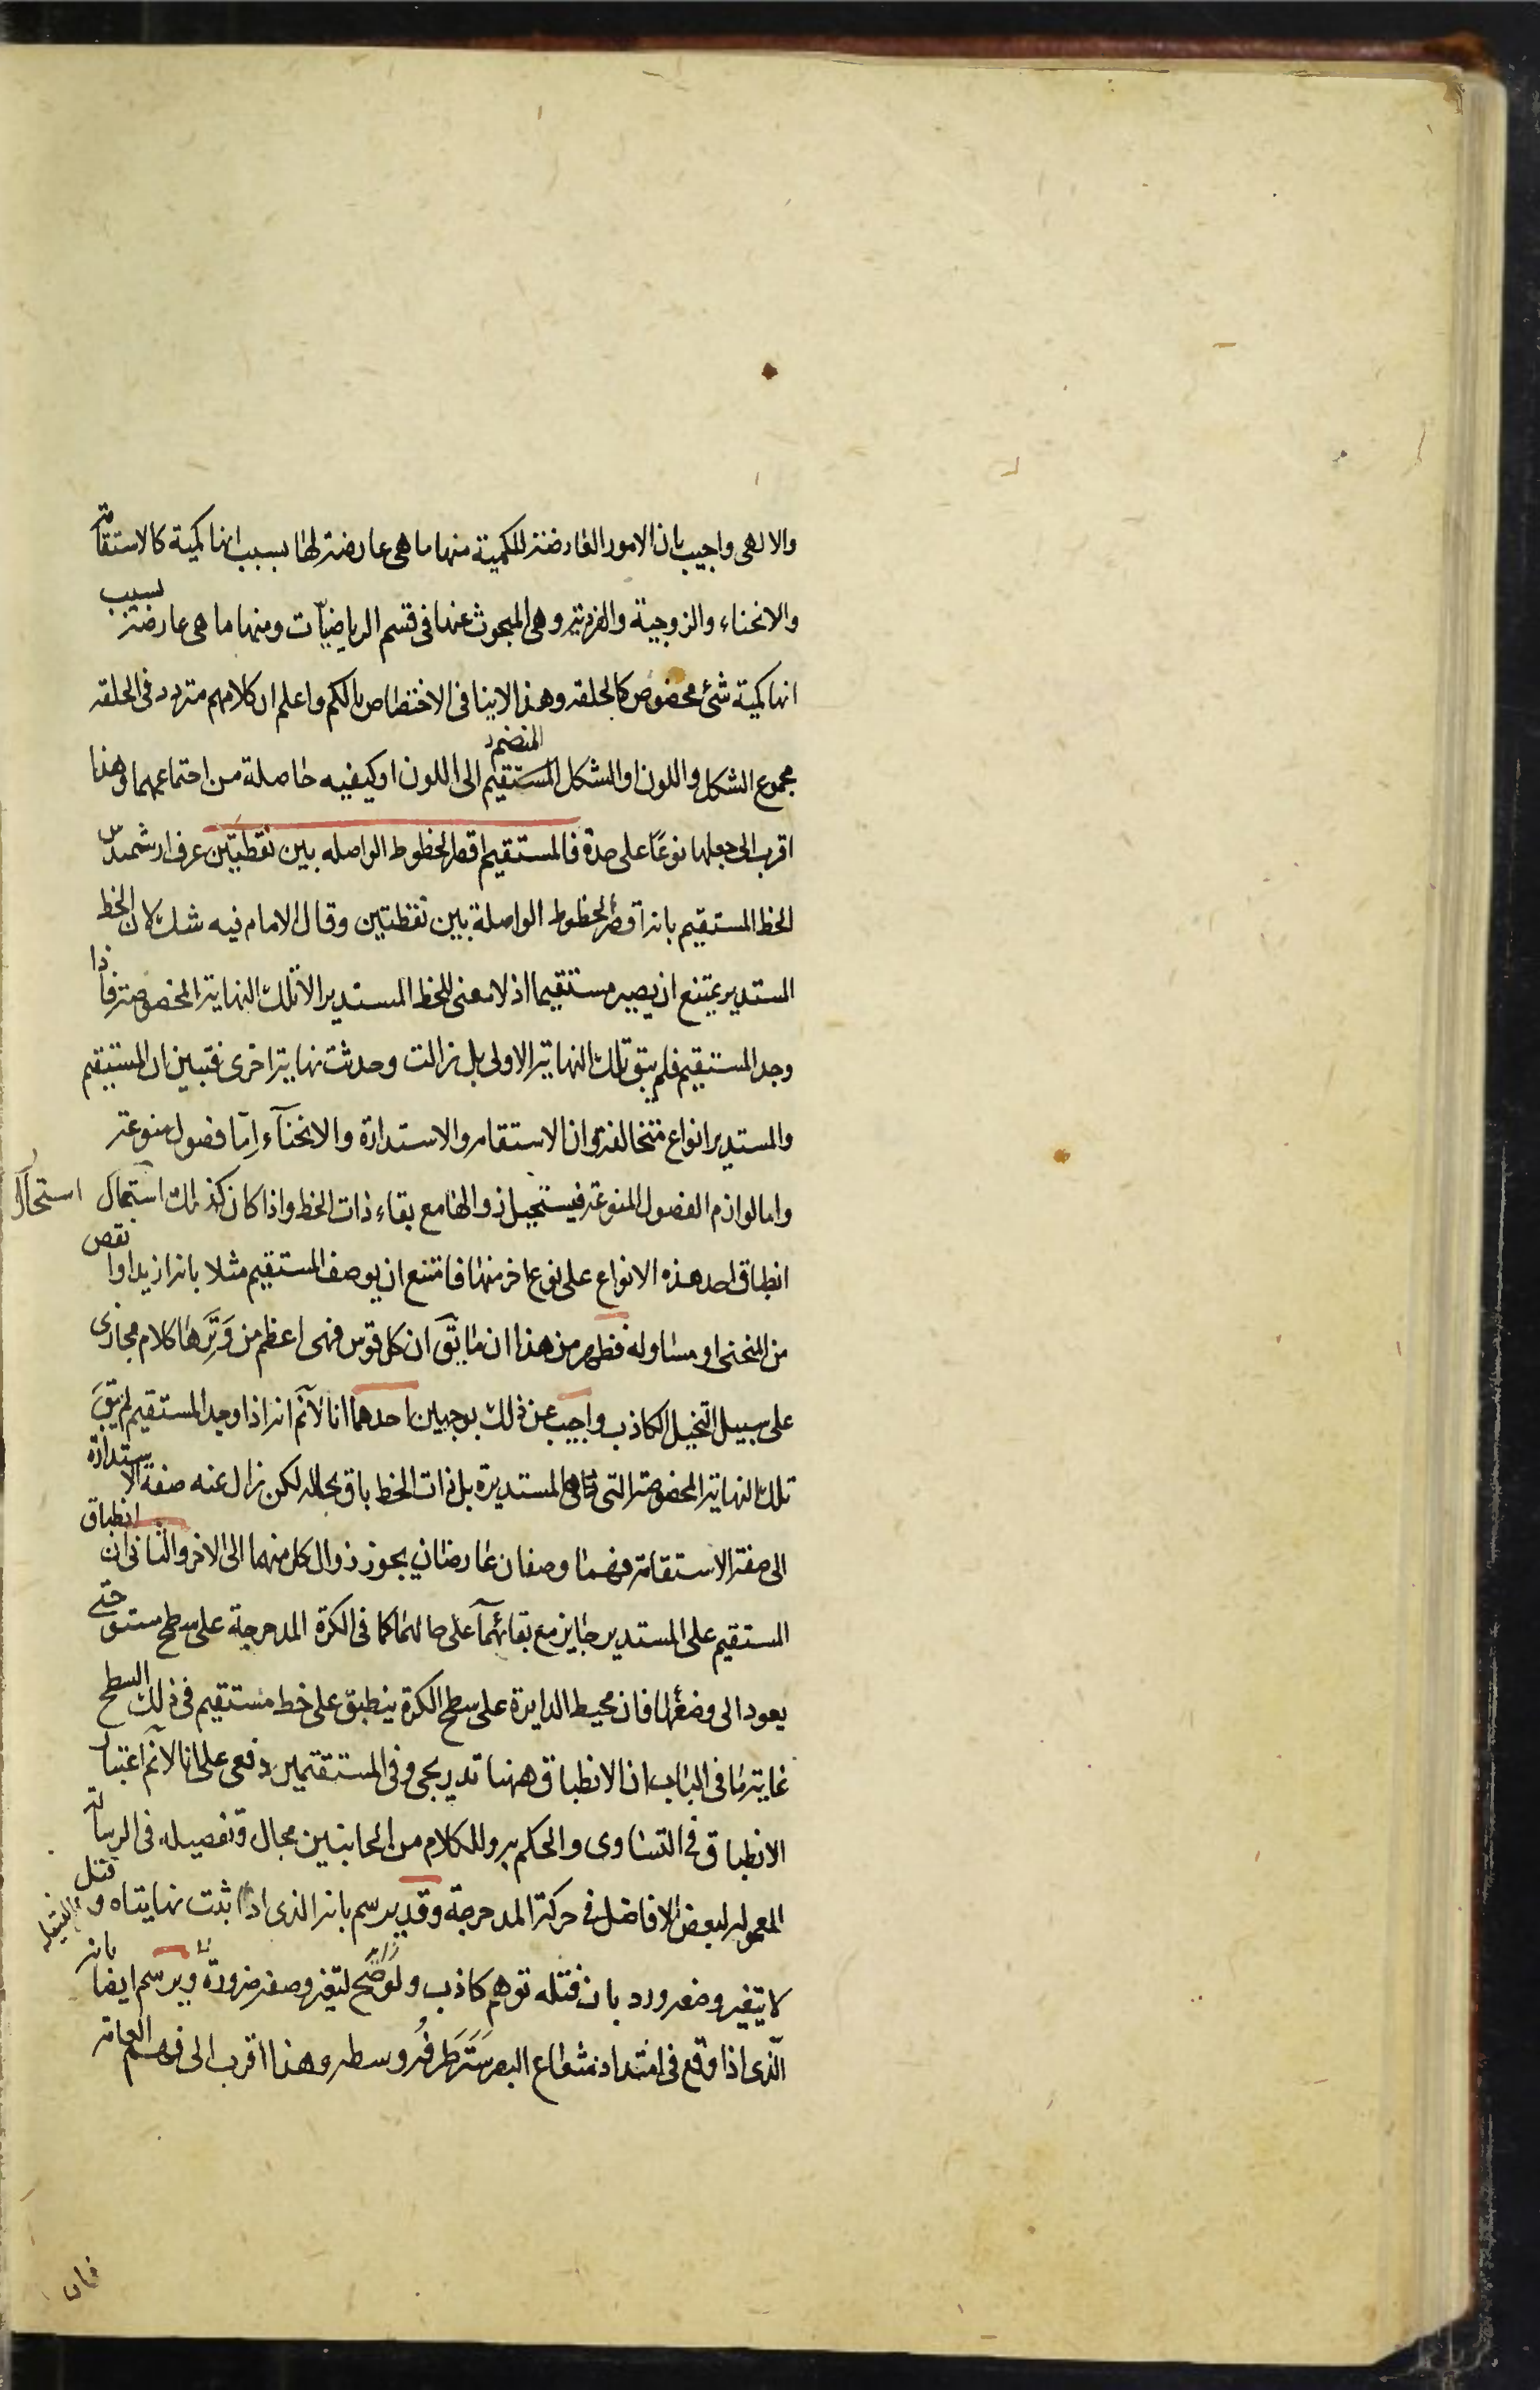 والالهى واجيب بان الامور العارضة للكمية منها ما هى عارضة لها بسبب انها كمية كالاستقامة
والانحناء والزوجية والفردية وهى المبحوث عنها فى قسم الرياضيّات ومنها ما هى عارضة بسبب
انها كمية شئ مخصوص كالحلقه وهذا لاينافى الاختصاص بالكم واعلم ان كلامهم متردد فى الحلقه
مجموع الشكل واللون او الشكل المستقيم المنضم الى اللون او كيفيه حاصلة من اجتماعهما وهذا
اقرب الى جعلها نوعًا على حدة فالمستقيم اقصر الخطوط الواصله بين نقطتين عرف ارشميدس
الخط المستقيم بانه اقصر الخطوط الواصلة بين نقطتين وقال الامام فيه شك لان الخط
المستدير يمتنع ان يصير مستقيما اذ لا معنى للخط المستدير الا تلك النهاية المخصوصة فاذا
وجد المستقيم فلم يبق تلك النهاية الاولى بل زالت وحدثت نهاية اخرى فتبين ان المستقيم
والمستدير انواع متخالفة وان الاستقامه والاستدارة والانحنآء إمّا فصول منوعة
واما لوازم الفصول المنوعة فيستحيل زوالها مع بقاء ذات الخط واذا كان كذلك استحال استحال
انطباق احد هذه الانواع على نوع اخر منها فامتنع ان يوصف المستقيم مثلا بانه ازيد او انقص
من المنحنى او مساو له فظهر من هذا ان ما يقَ ان كل قوس فهى اعظم من وَتَرها كلام مجازى
على سبيل التخيل الكاذب واجيب عن ذلك بوجهين احدهما انا لانَم انه اذا وجد المستقيم لم يبقَ
تلك النهاية المخصوصة التى هى المستديرة بل ذات الخط باق بحاله لكن زال عنه صفة الاستدارة
الى صفة الاستقامة فهما وصفان عارضان يجوز زوال كل منهما الى الاخر والثانى ان انطباق
المستقيم على المستدير جايز مع بقائهما على حالهما كما فى الكرة المدحرجة على سطح مستو حتى
يعود الى وضعها فان محيط الدايرة على سطح الكرة ينطبق على خط مستقيم فى ذلك السطح
غاية ما فى الباب ان الانطباق ههنا تدريجى وفى المستقيمين دفعى على انا لانَم اعتبار
الانطباق فى التساوى والحكم به وللكلام من الجانبين مجال وتفصيله فى الرسالة
المعموله لبعض الافاضل فى حركة المدحرجة وقد يرسم بانه الذى اذا ثبت نهايتاه وفتل
لا يتغير وضعه ورد بان فتله توهم كاذب ولو صَح لتغير وصفه ضرورة ويرسم ايضا بانه
الّذى اذا وقع فى امتداد شعاع البصر سَتَر طرفُه وسطه وهذا اقرب الى فهم العامة
فان